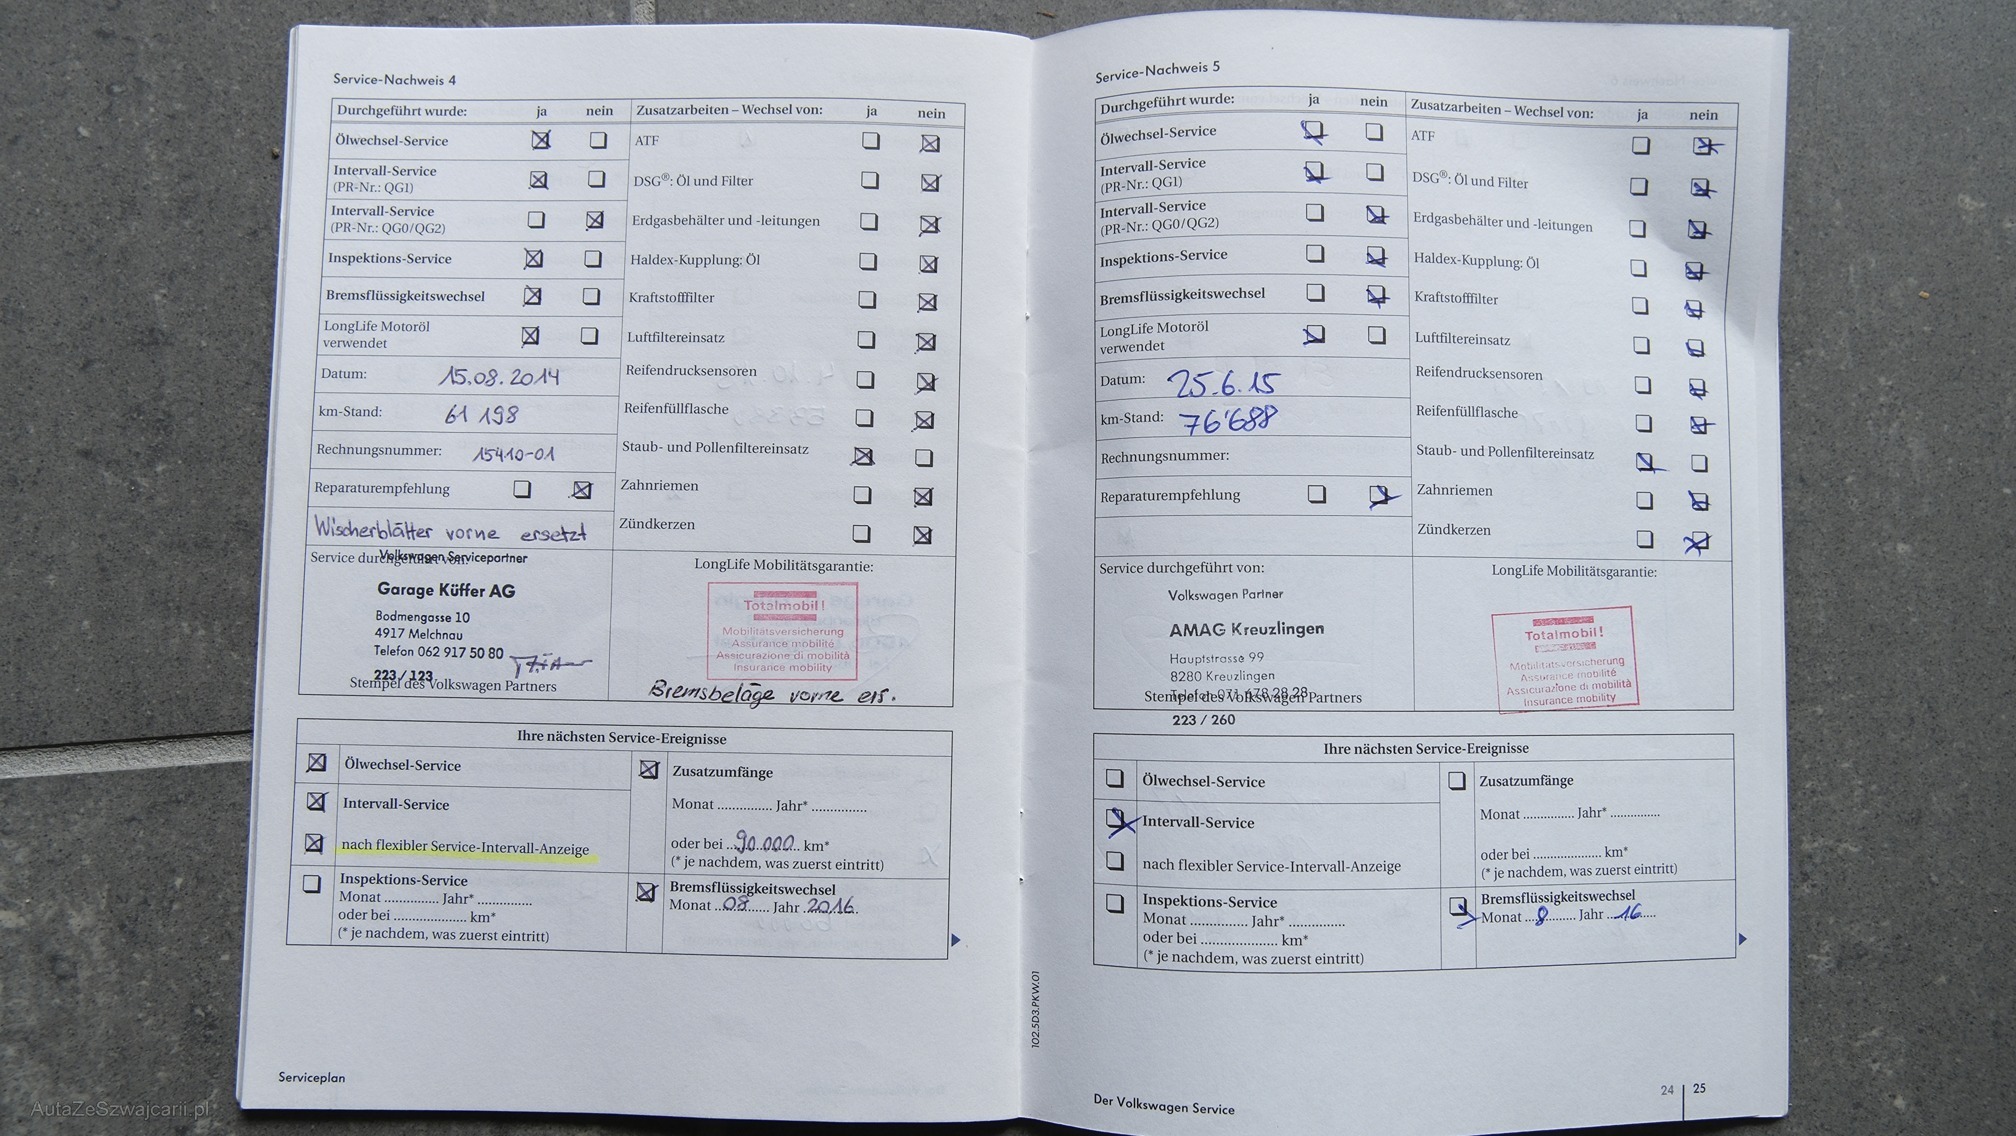 Service-Nachweis 4
Durchgeführt wurde: ja nein
Ölwechsel-Service
Intervall-Service
(PR-Nr.: QG1)
Intervall-Service
(PR-Nr.: QG0/QG2)
Inspektions-Service
Bremsflüssigkeitswechsel
LongLife Motoröl
verwendet
Datum: 15.08.2014
km-Stand: 61 198
Rechnungsnummer: 15410-01
Reparaturempfehlung
Wischerblätter vorne ersetzt
Zusatzarbeiten – Wechsel von: ja nein
ATF
DSG®: Öl und Filter
Erdgasbehälter und -leitungen
Haldex-Kupplung: Öl
Kraftstofffilter
Luftfiltereinsatz
Reifendrucksensoren
Reifenfüllflasche
Staub- und Pollenfiltereinsatz
Zahnriemen
Zündkerzen
Service durchgeführt von:
Volkswagen Servicepartner
Garage Küffer AG
Bodmengasse 10
4917 Melchnau
Telefon 062 917 50 80
223 / 123
Stempel des Volkswagen Partners
LongLife Mobilitätsgarantie:
Totalmobil!
Mobilitätsversicherung
Assurance mobilité
Assicurazione di mobilità
Insurance mobility
Bremsbeläge vorne ers.
Ihre nächsten Service-Ereignisse
Ölwechsel-Service
Intervall-Service
nach flexibler Service-Intervall-Anzeige
Inspektions-Service
Monat .............. Jahr* ..............
oder bei ................... km*
(* je nachdem, was zuerst eintritt)
Zusatzumfänge
Monat .............. Jahr* ..............
oder bei ..90.000.. km*
(* je nachdem, was zuerst eintritt)
Bremsflüssigkeitswechsel
Monat ..08...... Jahr .2016.
Serviceplan
Service-Nachweis 5
Durchgeführt wurde: ja nein
Ölwechsel-Service
Intervall-Service
(PR-Nr.: QG1)
Intervall-Service
(PR-Nr.: QG0/QG2)
Inspektions-Service
Bremsflüssigkeitswechsel
LongLife Motoröl
verwendet
Datum: 25.6.15
km-Stand: 76'688
Rechnungsnummer:
Reparaturempfehlung
Zusatzarbeiten – Wechsel von: ja nein
ATF
DSG®: Öl und Filter
Erdgasbehälter und -leitungen
Haldex-Kupplung: Öl
Kraftstofffilter
Luftfiltereinsatz
Reifendrucksensoren
Reifenfüllflasche
Staub- und Pollenfiltereinsatz
Zahnriemen
Zündkerzen
Service durchgeführt von:
Volkswagen Partner
AMAG Kreuzlingen
Hauptstrasse 99
8280 Kreuzlingen
Telefon 071 678 28 28
Stempel des Volkswagen Partners
223 / 260
LongLife Mobilitätsgarantie:
Totalmobil!
Mobilitätsversicherung
Assurance mobilité
Assicurazione di mobilità
Insurance mobility
Ihre nächsten Service-Ereignisse
Ölwechsel-Service
Intervall-Service
nach flexibler Service-Intervall-Anzeige
Inspektions-Service
Monat .............. Jahr* ..............
oder bei .................... km*
(* je nachdem, was zuerst eintritt)
Zusatzumfänge
Monat .............. Jahr* ..............
oder bei .................... km*
(* je nachdem, was zuerst eintritt)
Bremsflüssigkeitswechsel
Monat ...8........ Jahr ..16....
102.5D3.PKW.01
Der Volkswagen Service
24 | 25
AutaZeSzwajcarii.pl